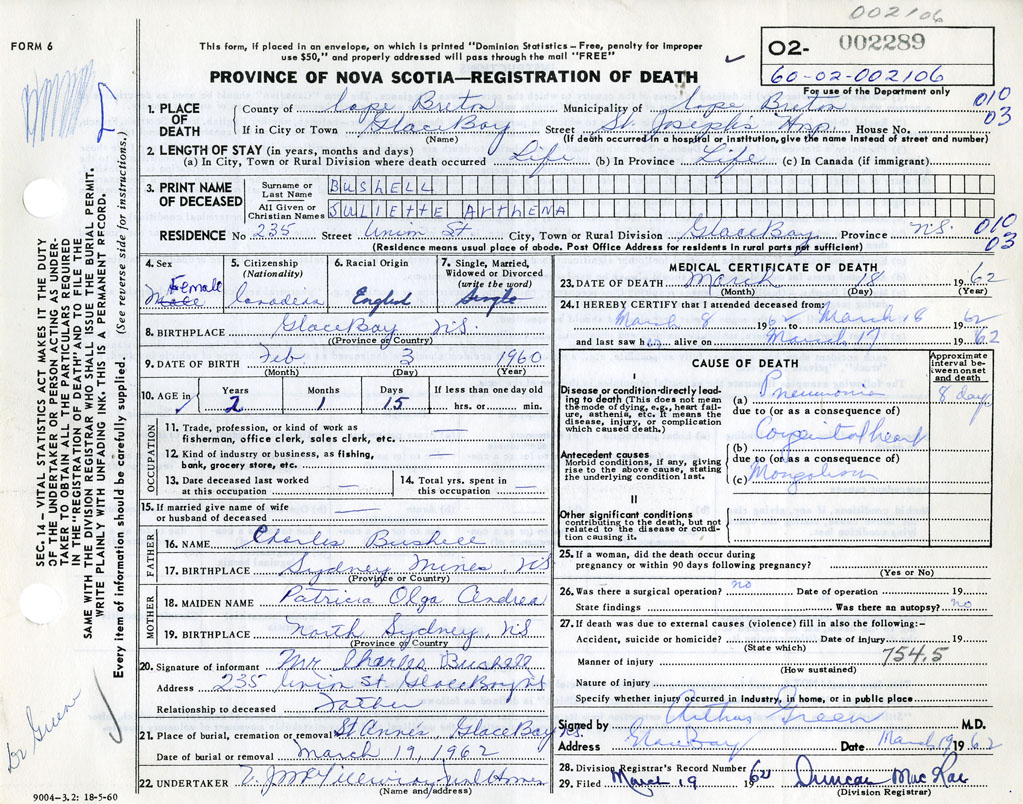 002106
FORM 6
This form, if placed in an envelope, on which is printed "Dominion Statistics – Free, penalty for improper
use $50," and properly addressed will pass through the mail "FREE"
PROVINCE OF NOVA SCOTIA—REGISTRATION OF DEATH
O2- 002289
60-02-002106
For use of the Department only
010
03
1. PLACE OF DEATH
County of Cape Breton Municipality of Cape Breton
If in City or Town Glace Bay Street St. Joseph's Hosp. House No.
(Name) (If death occurred in a hospital or institution, give the name instead of street and number)
2. LENGTH OF STAY (in years, months and days)
(a) In City, Town or Rural Division where death occurred Life (b) In Province Life (c) In Canada (if immigrant)
3. PRINT NAME OF DECEASED
Surname or Last Name BUSHELL
All Given or Christian Names JULIETTE ATHENA
RESIDENCE No 235 Street Union St City, Town or Rural Division Glace Bay Province N.S. 010
03
(Residence means usual place of abode. Post Office Address for residents in rural parts not sufficient)
4. Sex Female Male
5. Citizenship (Nationality) Canadian
6. Racial Origin English
7. Single, Married, Widowed or Divorced (write the word) Single
8. BIRTHPLACE Glace Bay N.S.
(Province or Country)
9. DATE OF BIRTH Feb 3 1960
(Month) (Day) (Year)
10. AGE in Years 2 Months 1 Days 15 If less than one day old hrs. or min.
OCCUPATION
11. Trade, profession, or kind of work as
fisherman, office clerk, sales clerk, etc. —
12. Kind of industry or business, as fishing,
bank, grocery store, etc. —
13. Date deceased last worked
at this occupation —
14. Total yrs. spent in
this occupation —
15. If married give name of wife
or husband of deceased —
FATHER
16. NAME Charles Bushell
17. BIRTHPLACE Sydney Mines NS
(Province or Country)
MOTHER
18. MAIDEN NAME Patricia Olga Andrea
19. BIRTHPLACE North Sydney, NS
(Province or Country)
20. Signature of informant Mr Charles Bushell
Address 235 Union St. Glace Bay NS
Relationship to deceased Father
21. Place of burial, cremation or removal St Anne's Glace Bay N.S.
Date of burial or removal March 19, 1962
22. UNDERTAKER
(Name and address)
9004-3.2: 18-5-60
MEDICAL CERTIFICATE OF DEATH
23. DATE OF DEATH March 18 1962
(Month) (Day) (Year)
24. I HEREBY CERTIFY that I attended deceased from:
March 8 1962 to March 18 1962
and last saw h alive on March 17 1962
CAUSE OF DEATH
Approximate interval between onset and death
I
Disease or condition directly leading to death (This does not mean the mode of dying, e.g., heart failure, asthenia, etc. It means the disease, injury, or complication which caused death.)
(a) Pneumonia 8 days
due to (or as a consequence of)
(b) Congenital heart
Antecedent causes
Morbid conditions, if any, giving rise to the above cause, stating the underlying condition last.
due to (or as a consequence of)
(c) Mongolism
II
Other significant conditions
contributing to the death, but not related to the disease or condition causing it.
25. If a woman, did the death occur during
pregnancy or within 90 days following pregnancy?
(Yes or No)
26. Was there a surgical operation? no Date of operation 19
State findings Was there an autopsy? no
27. If death was due to external causes (violence) fill in also the following:–
Accident, suicide or homicide? Date of injury 19
(State which)
Manner of injury 754.5
(How sustained)
Nature of injury
Specify whether injury occurred in industry, in home, or in public place
Signed by Arthur Green M.D.
Address Glace Bay Date March 19 1962
28. Division Registrar's Record Number
29. Filed March 19 1962 Duncan MacRae
(Division Registrar)
SEC. 14 – VITAL STATISTICS ACT MAKES IT THE DUTY
OF THE UNDERTAKER OR PERSON ACTING AS UNDER-
TAKER TO OBTAIN ALL THE PARTICULARS REQUIRED
IN THE "REGISTRATION OF DEATH" AND TO FILE THE
SAME WITH THE DIVISION REGISTRAR WHO SHALL ISSUE THE BURIAL PERMIT.
WRITE PLAINLY WITH UNFADING INK. THIS IS A PERMANENT RECORD.
Every item of information should be carefully supplied. (See reverse side for instructions.)
Dr Green